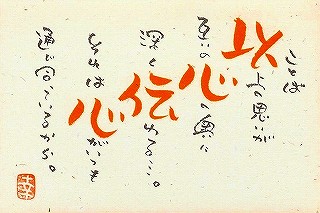 ことば
以上の思いが
互いの心の奥に
深く伝わる…。
それは心がいつも
通じ合っているから。